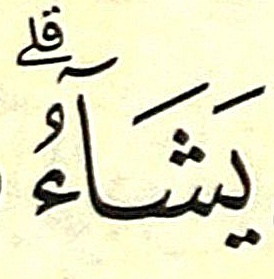 يَشَآءُۗ